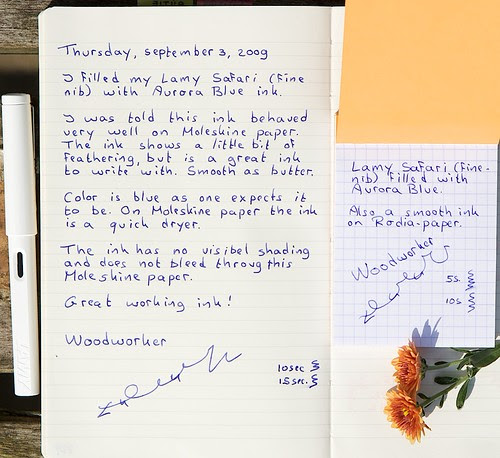 Thursday, september 3, 2009
I filled my Lamy Safari (fine
nib) with Aurora Blue ink.
I was told this ink behaved
very well on Moleskine paper.
The ink shows a little bit of
feathering, but is a great ink
to write with. Smooth as butter.
Color is blue as one expects it
to be. On Moleskine paper the ink
is a quick dryer.
The ink has no visibel shading
and does not bleed throug this
Moleskine paper.
Great working ink!
Woodworker
10sec
15sec.
Lamy Safari (fine-
nib) filled with
Aurora Blue.
Also a smooth ink
on Rodia-paper.
Woodworker
5s.
10s